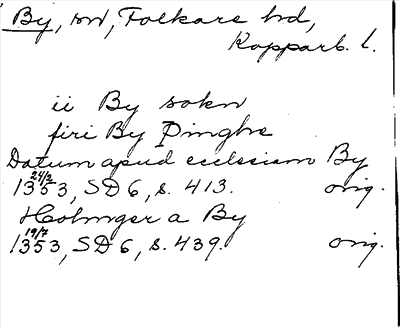 By, sn, Folkare hd,
Kopparb. l.
ii By sokn
firi By Þinghe
Datum apud ecclesiam By
24/2
1353, SD 6, s. 413. orig.
Holmger a By
19/7
1353, SD 6, s. 439. orig.